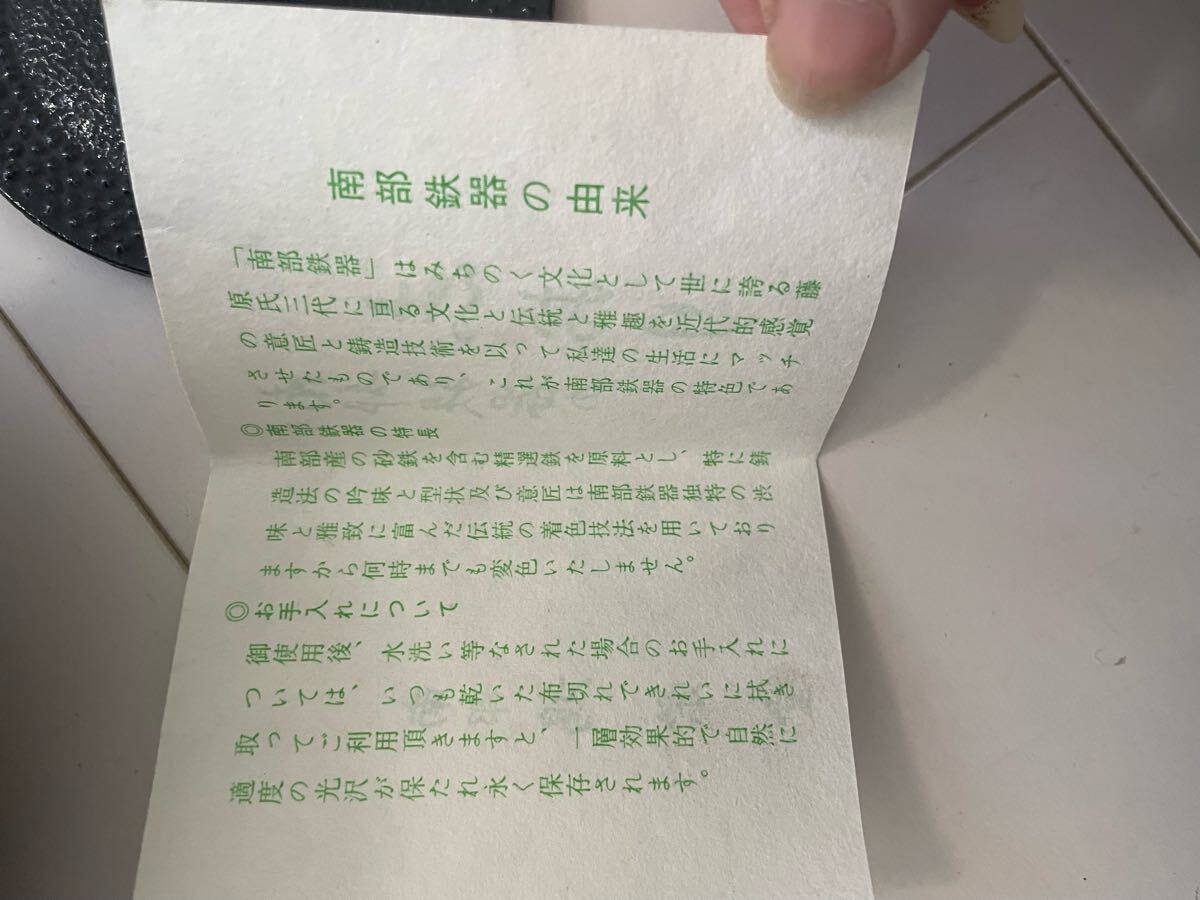 南部鉄器の由来
「南部鉄器」はみちのく文化として世に誇る藤
原氏三代に亘る文化と伝統と雅趣を近代的感覚
の意匠と鋳造技術を以って私達の生活にマッチ
させたものであり、これが南部鉄器の特色であ
ります。
◎南部鉄器の特長
南部産の砂鉄を含む精選鉄を原料とし、特に鋳
造法の吟味と型状及び意匠は南部鉄器独特の渋
味と雅致に富んだ伝統の着色技法を用いており
ますから何時までも変色いたしません。
◎お手入れについて
御使用後、水洗い等なされた場合のお手入れに
ついては、いつも乾いた布切れできれいに拭き
取ってご利用頂きますと、一層効果的で自然に
適度の光沢が保たれ永く保存されます。